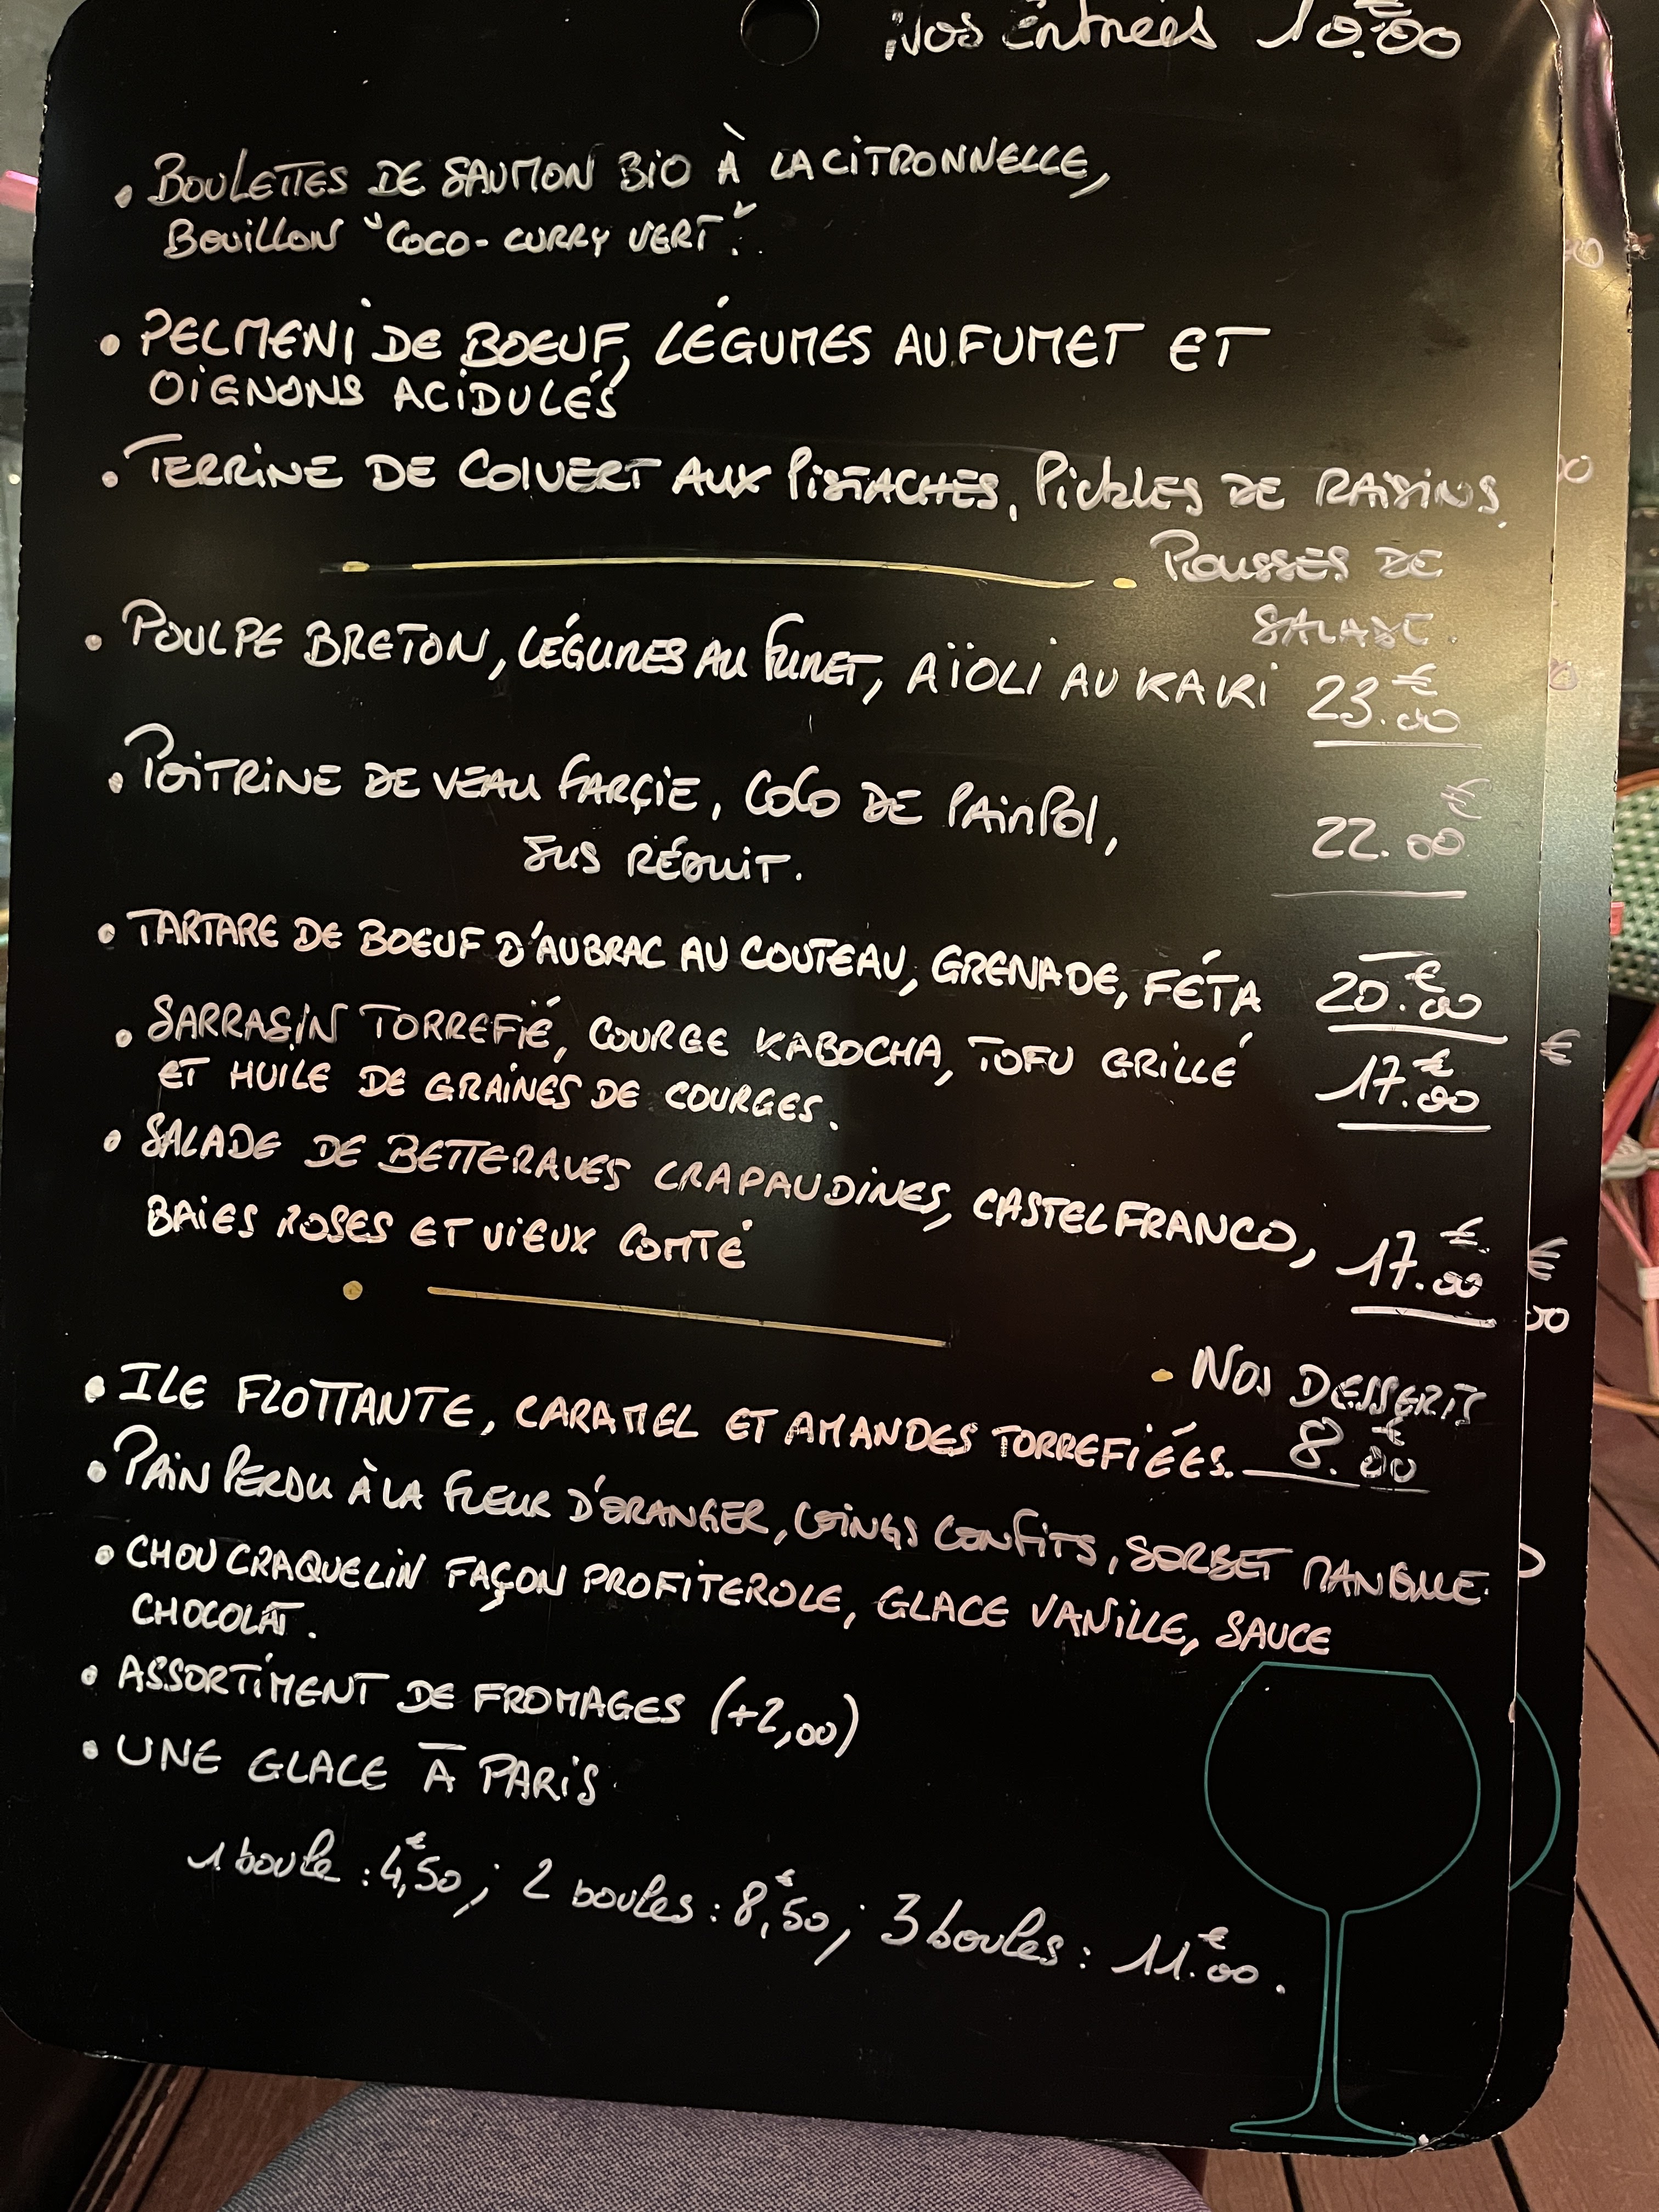 Nos Entrées 10.€00
• BOULETTES DE SAUMON BIO À LA CITRONNELLE,
BOUILLON "COCO-CURRY VERT".
• PELMENI DE BOEUF, LÉGUMES AU FUMET ET
OIGNONS ACIDULÉS
• TERRINE DE COLVERT AUX PISTACHES, PICKLES DE RAISINS,
POUSSES DE
SALADE.
• POULPE BRETON, LÉGUMES AU FUMET, AÏOLI AU KAKI 23.€00
• POITRINE DE VEAU FARÇIE, COCO DE PAIMPOL, 22.00€
JUS RÉDUIT.
• TARTARE DE BOEUF D'AUBRAC AU COUTEAU, GRENADE, FÉTA 20.€00
• SARRASIN TORREFIÉ, COURGE KABOCHA, TOFU GRILLÉ 17.€00
ET HUILE DE GRAINES DE COURGES.
• SALADE DE BETTERAVES CRAPAUDINES, CASTELFRANCO, 17.€00
BAIES ROSES ET VIEUX COMTÉ
• NOS DESSERTS
• ILE FLOTTANTE, CARAMEL ET AMANDES TORREFIÉES. 8.€00
• PAIN PERDU À LA FLEUR D'ORANGER, COINGS CONFITS, SORBET MANGUE.
• CHOU CRAQUELIN FAÇON PROFITEROLE, GLACE VANILLE, SAUCE
CHOCOLAT.
• ASSORTIMENT DE FROMAGES (+2,00)
• UNE GLACE À PARIS.
1 boule : 4,€50 ; 2 boules : 8,€50 ; 3 boules : 11.€00.